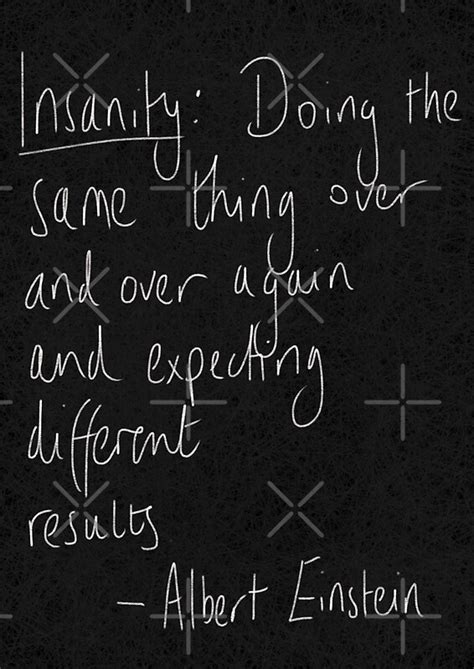 Insanity: Doing the
same thing over
and over again
and expecting
different
results
- Albert Einstein